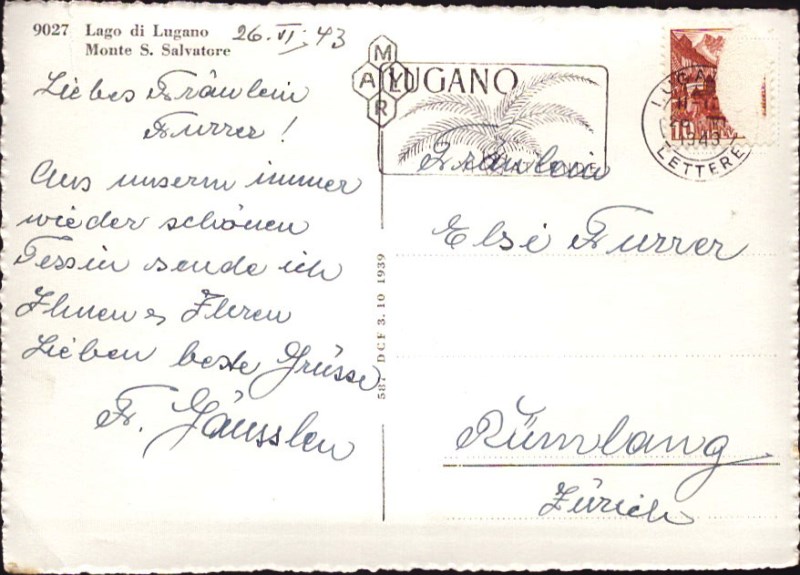 9027 Lago di Lugano
Monte S. Salvatore
26. VI. 43
Liebes Fräulein
Furrer!
Aus unserm immer
wieder schönen
Tessin sende ich
Ihnen & Ihren
Lieben beste Grüsse
Fr.
587 DCF 3. 10 1939
MARY
LUGANO
LUGANO
LETTERE
1943
10
Fräulein
Elsi Furrer
Rümlang
Zürich